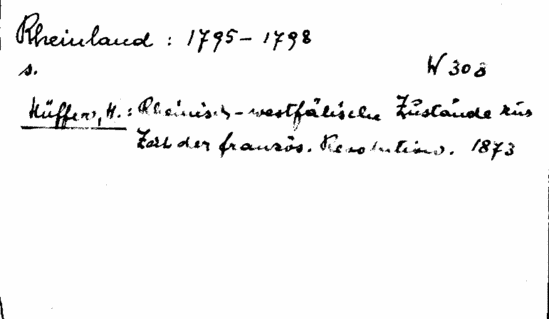 Rheinland : 1795-1798
s. W 308
Hüffer, H.: Rheinisch-westfälische Zustände zur
Zeit der französ. Revolution. 1873